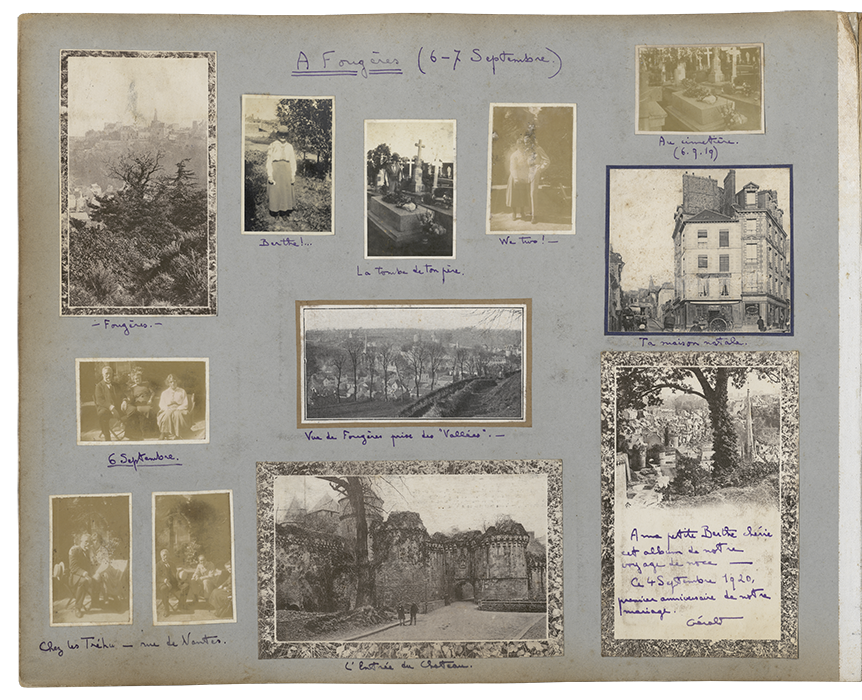 A Fougères (6-7 Septembre.)
Au cimetière.
(6.9.19)
Berthe!...
La tombe de ton père.
We two! —
— Fougères. —
Ta maison natale.
Vue de Fougères prise des "Vallées". —
6 Septembre.
A ma petite Berthe chérie
cet album de notre
voyage de noce —
Ce 4 Septembre 1920,
premier anniversaire de notre
mariage.
Chez les — rue de Nantes.
L'Entrée du Chateau.